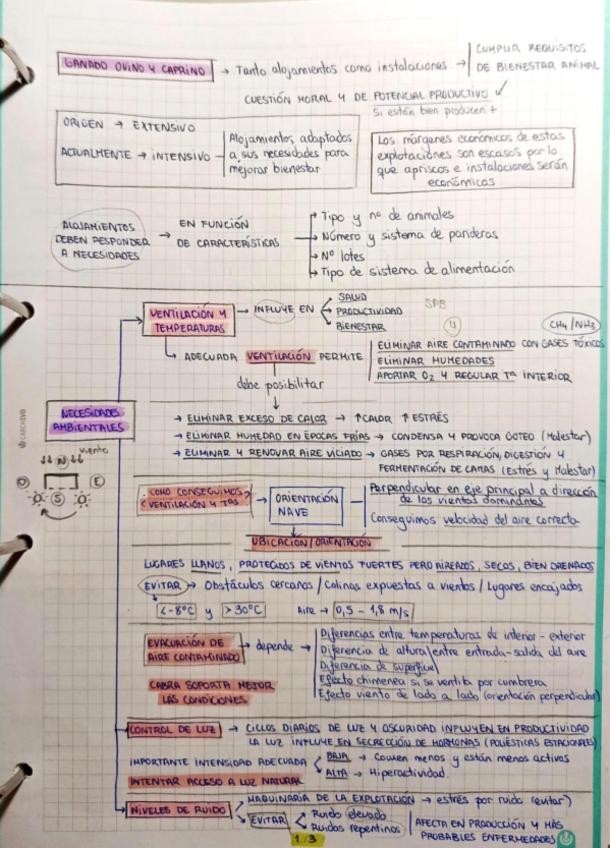 GANADO OVINO Y CAPRINO → Tanto alojamientos como instalaciones → CUMPLIR REQUISITOS
DE BIENESTAR ANIMAL
CUESTIÓN MORAL Y DE POTENCIAL PRODUCTIVO ✓
Si están bien producen +
ORIGEN → EXTENSIVO
ACTUALMENTE → INTENSIVO
Alojamientos adaptados
a sus necesidades para
mejorar bienestar
Los márgenes económicos de estas
explotaciones son escasos por lo
que apriscos e instalaciones serán
económicos
ALOJAMIENTOS
DEBEN RESPONDER
A NECESIDADES
→ EN FUNCIÓN
DE CARACTERÍSTICAS
→ Tipo y nº de animales
→ Número y sistema de parideras
→ Nº lotes
→ Tipo de sistema de alimentación
VENTILACIÓN Y
TEMPERATURAS
→ INFLUYE EN
SALUD
PRODUCTIVIDAD
BIENESTAR
CH4/NH3
ADECUADA VENTILACIÓN PERMITE
ELIMINAR AIRE CONTAMINADO CON GASES TÓXICOS
ELIMINAR HUMEDADES
APORTAR O2 Y REGULAR Tª INTERIOR
debe posibilitar
NECESIDADES
AMBIENTALES
→ ELIMINAR EXCESO DE CALOR → ↑CALOR ↑ESTRÉS
→ ELIMINAR HUMEDAD EN ÉPOCAS FRÍAS → CONDENSA Y PROVOCA GOTEO (Malestar)
→ ELIMINAR Y RENOVAR AIRE VICIADO → GASES POR RESPIRACIÓN, DIGESTIÓN Y
FERMENTACIÓN DE CAMAS (Estrés y Malestar)
viento
N
O E
S
¿COMO CONSEGUIMOS
VENTILACIÓN Y TAS?
→ ORIENTACIÓN
NAVE
Perpendicular en eje principal a dirección
de los vientos dominantes
Conseguimos velocidad del aire correcta
UBICACIÓN/ORIENTACIÓN
LUGARES LLANOS, PROTEGIDOS DE VIENTOS FUERTES PERO AIREADOS, SECOS, BIEN DRENADOS
EVITAR → Obstáculos cercanos / Colinas expuestas a vientos / Lugares encajados
<-8ºC y >30ºC Aire → 0,5 - 1,8 m/s
EVACUACIÓN DE
AIRE CONTAMINADO
→ depende →
Diferencias entre temperaturas de interior-exterior
Diferencia de altura entre entrada-salida del aire
Diferencia de superficie
Efecto chimenea si se ventila por cumbrera
Efecto viento de lado a lado (orientación perpendicular)
CABRA SOPORTA MEJOR
LAS CONDICIONES
CONTROL DE LUZ → CICLOS DIARIOS DE LUZ Y OSCURIDAD INFLUYEN EN PRODUCTIVIDAD
LA LUZ INFLUYE EN SECRECIÓN DE HORMONAS (POLIÉSTICAS ESTACIONALES)
IMPORTANTE INTENSIDAD ADECUADA
BAJA → Comen menos y están menos activos
ALTA → Hiperactividad.
INTENTAR ACCESO A LUZ NATURAL
NIVELES DE RUIDO
MAQUINARIA DE LA EXPLOTACIÓN → estrés por ruido (evitar)
EVITAR
Ruido elevado
Ruidos repentinos
AFECTA EN PRODUCCIÓN Y MÁS
PROBABLES ENFERMEDADES
1/3